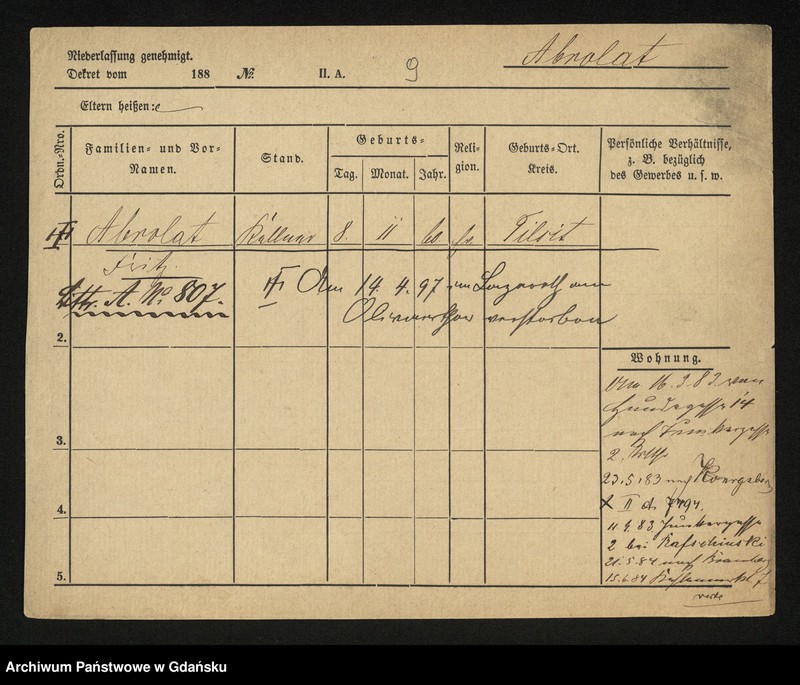 Niederlassung genehmigt.
Dekret vom 188 No. II. A. 9
Abrolat
Eltern heißen:
Ordn.-Nro.
Familien- und Vor-
Namen.
Stand.
Geburts-
Tag. Monat. Jahr.
Reli-
gion.
Geburts-Ort.
Kreis.
Persönliche Verhältnisse,
z. B. bezüglich
des Gewerbes u. s. w.
Abrolat Kellner 8. II 60 Tilsit
Fritz.
Littr. A. No. 807.
Am 14. 4. 97 im Lazareth am
Olivaerthor verstorben
2.
3.
4.
5.
Wohnung.
Am 16.3.83 von
Hundegasse 14
nach Junkergasse
2.
23.5.83 nach Koenigsberg
11.9.83. Junkergasse
2 bei
21.5.84 nach
15.6.84 Kohlenmarkt
verte
Archiwum Państwowe w Gdańsku